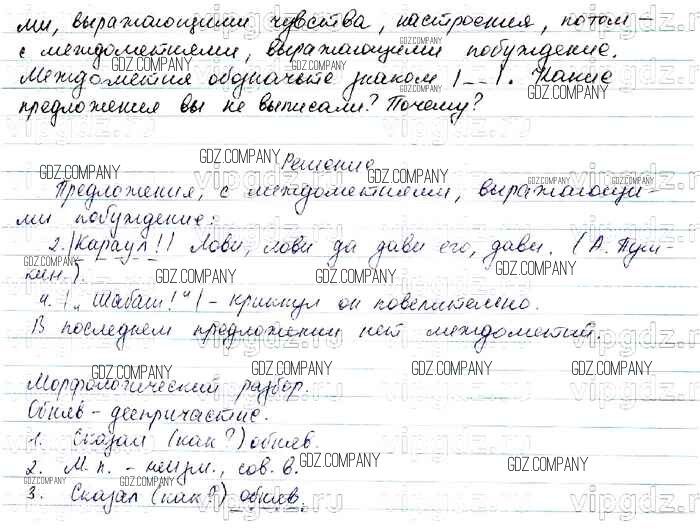 ми, выражающими чувства, настроения, потом –
с междометиями, выражающими побуждение.
Междометия обозначьте знаком |_ _|. Какие
предложения вы не выписали? Почему?
Решение
Предложения, с междометиями, выражающи-
ми побуждение:
2. |Караул!| Лови, лови да дави его, дави. (А. Пуш-
кин.).
4. |„Шабаш!“| – крикнул он повелительно.
В последнем предложении нет междометий.
Морфологический разбор.
Обняв – деепричастие.
1. Сказал (как?) обняв.
2. М. п. – неизм., сов. в.
3. Сказал (как?) обняв.
GDZ.COMPANY
vipgdz.ru